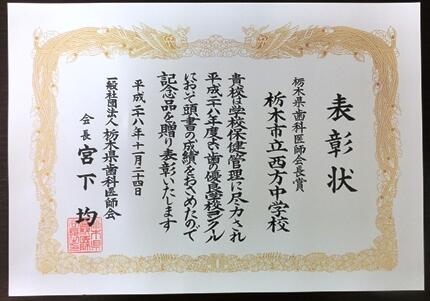 表彰状
栃木県歯科医師会長賞
栃木市立西方中学校
貴校は学校保健管理に尽力され
平成二八年度よい歯の優良学校コンクール
において頭書の成績をおさめたので
記念品を贈り表彰いたします
平成二八年十一月二四日
一般社団法人 栃木県歯科医師会
会長 宮下均